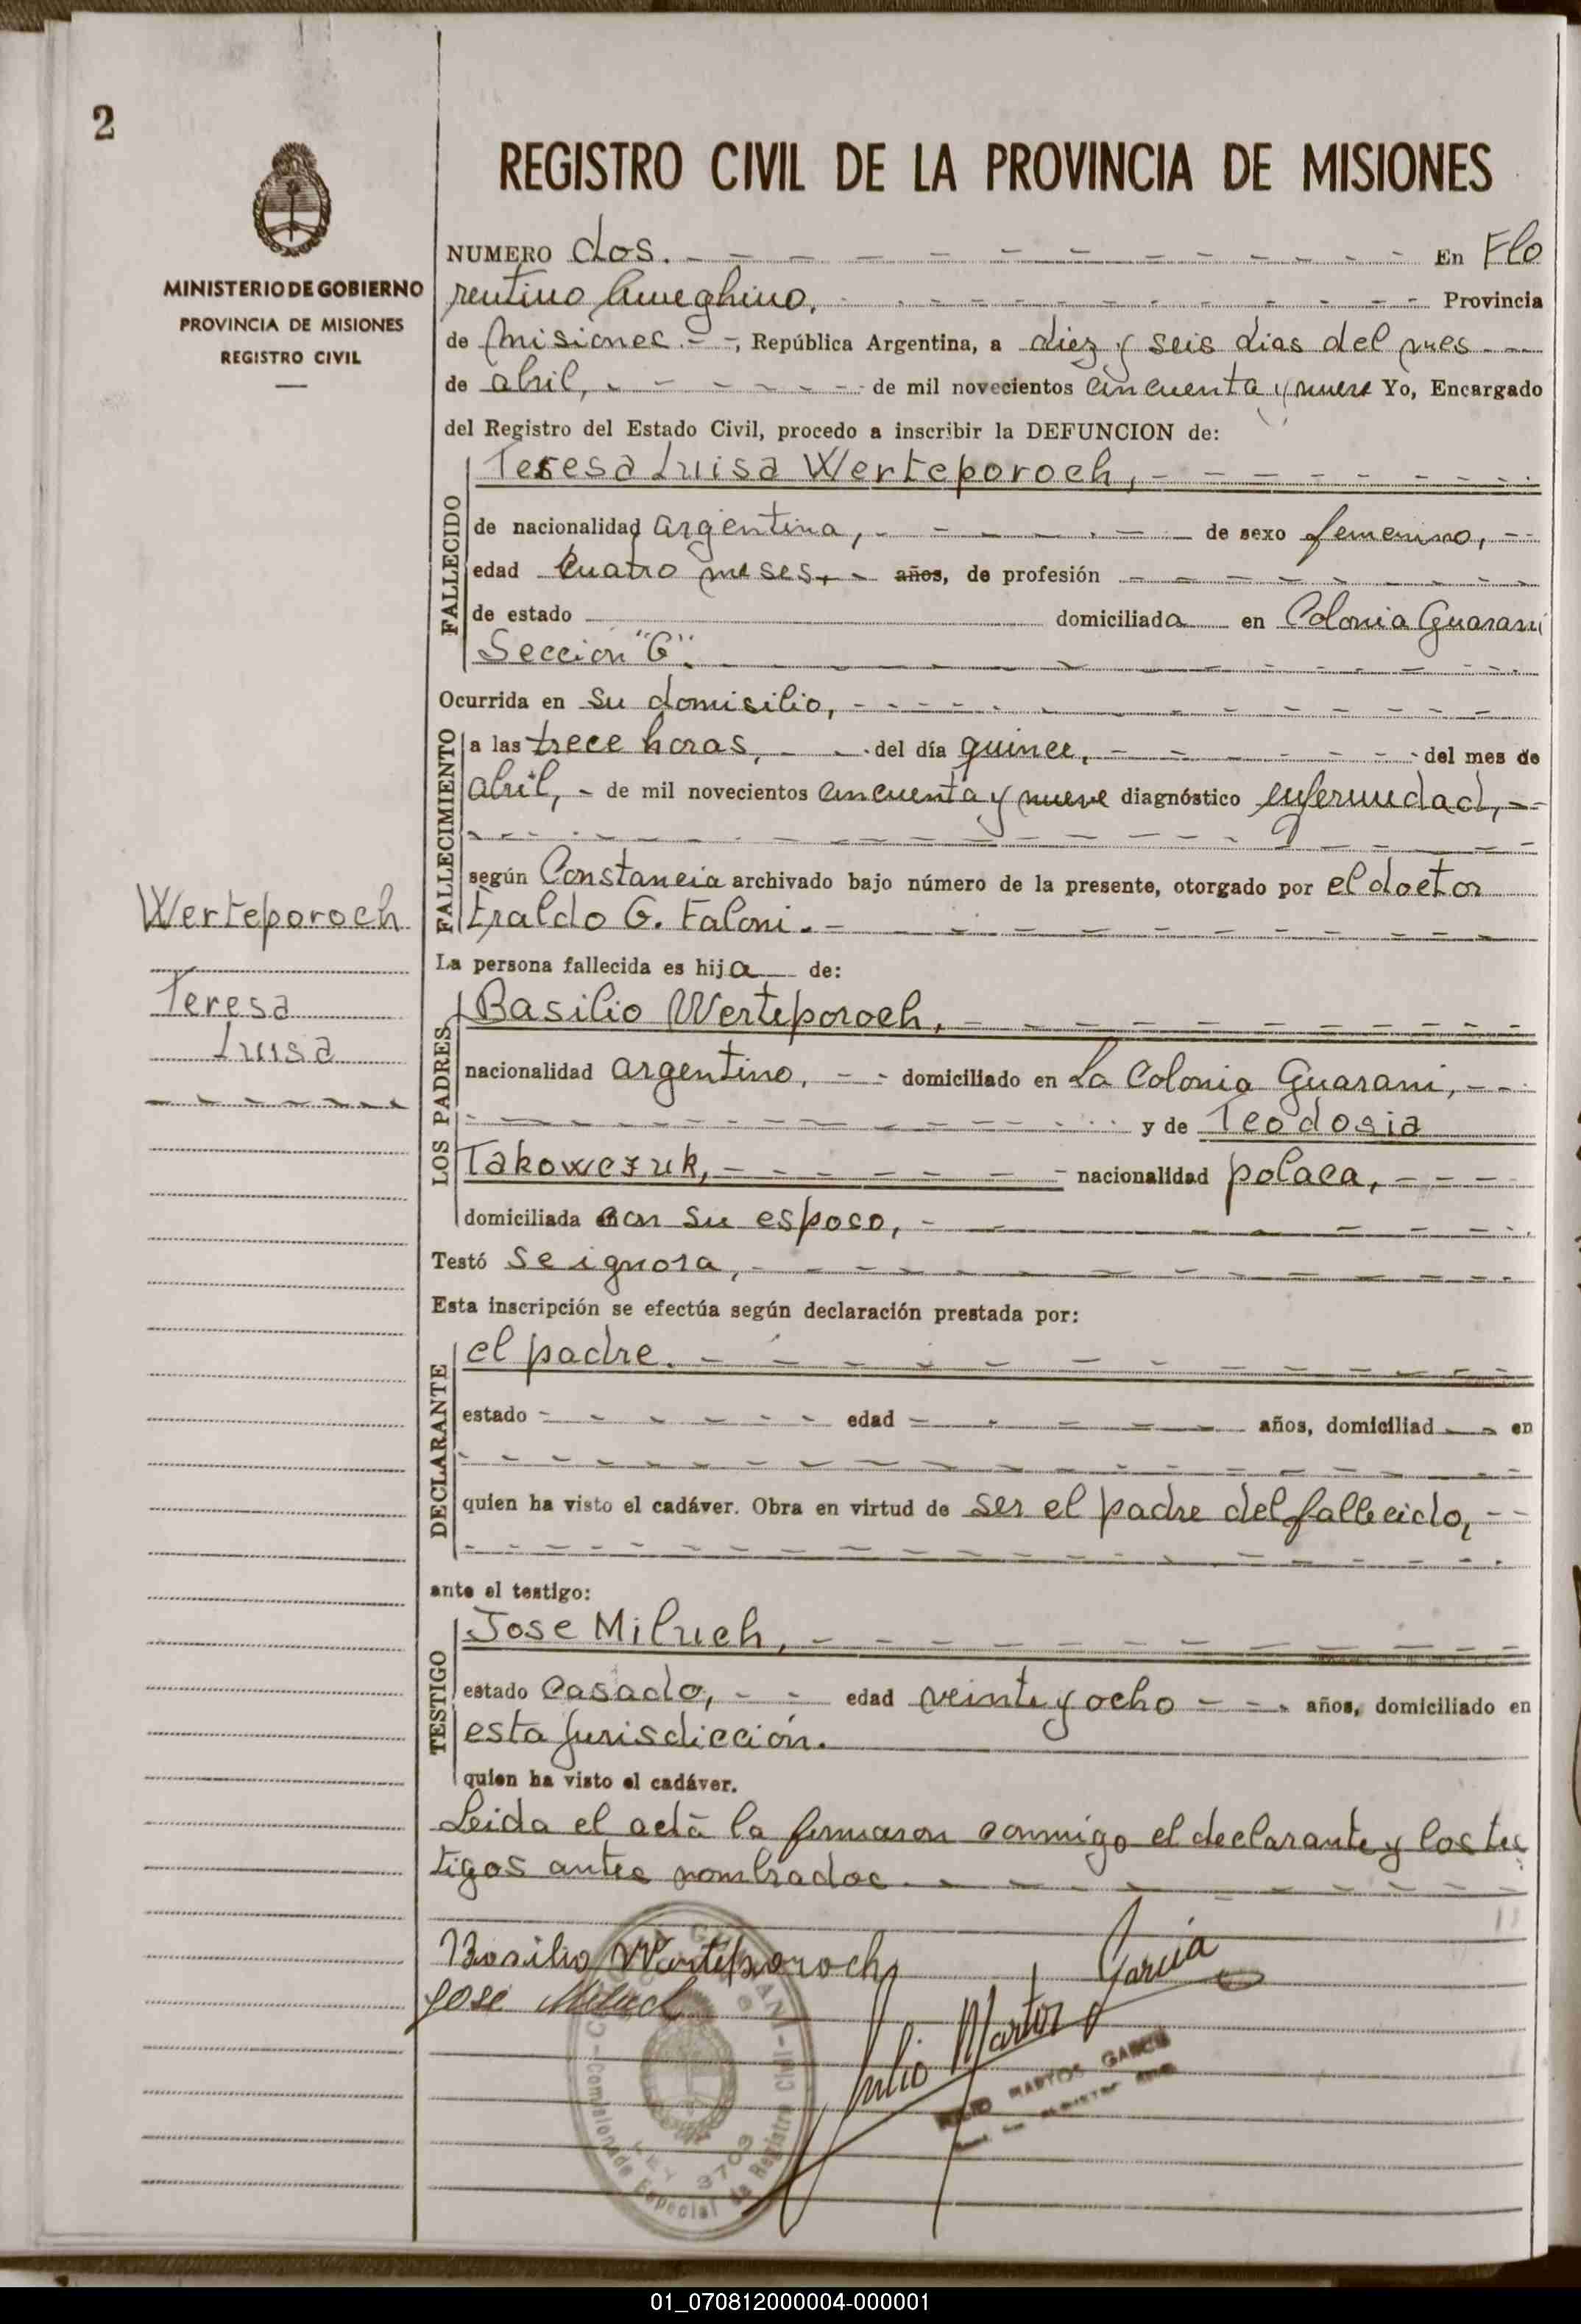 2
MINISTERIO DE GOBIERNO
PROVINCIA DE MISIONES
REGISTRO CIVIL
REGISTRO CIVIL DE LA PROVINCIA DE MISIONES
NUMERO dos. En Flo
rentino Ameghino, Provincia
de Misiones.-, República Argentina, a diez y seis dias del mes
de abril, de mil novecientos cincuenta y nueve Yo, Encargado
del Registro del Estado Civil, procedo a inscribir la DEFUNCION de:
FALLECIDO
Teresa Luisa Werteporoch,
de nacionalidad argentina, de sexo femenino,
edad cuatro meses, años, de profesión
de estado domiciliada en Colonia Guarani
Sección "G".
Ocurrida en su domisilio,
FALLECIMIENTO
a las trece horas, del día quince, del mes de
abril, de mil novecientos cincuenta y nueve diagnóstico enfermedad,
según Constancia archivado bajo número de la presente, otorgado por el doctor
Eraldo G. Faloni.
Werteporoch
Teresa
Luisa
La persona fallecida es hija de:
LOS PADRES
Basilio Werteporoch,
nacionalidad argentino, domiciliado en La Colonia Guarani,
y de Teodosia
Takowczuk, nacionalidad polaca,
domiciliada con su esposo,
Testó se ignora,
Esta inscripción se efectúa según declaración prestada por:
DECLARANTE
el padre.
estado edad años, domiciliad en
quien ha visto el cadáver. Obra en virtud de ser el padre del fallecido,
ante el testigo:
TESTIGO
Jose Miluch,
estado casado, edad veinte y ocho años, domiciliado en
esta jurisdicción.
quien ha visto el cadáver.
Leida el acta la firmaron conmigo el declarante y los tes
tigos antes nombrados
Basilio Werteporoch
Jose Miluch
Julio Martos Garcia
JULIO MARTOS GARCIA
Comisionado Especial de Registro Civil
LEY 3703
01_070812000004-000001